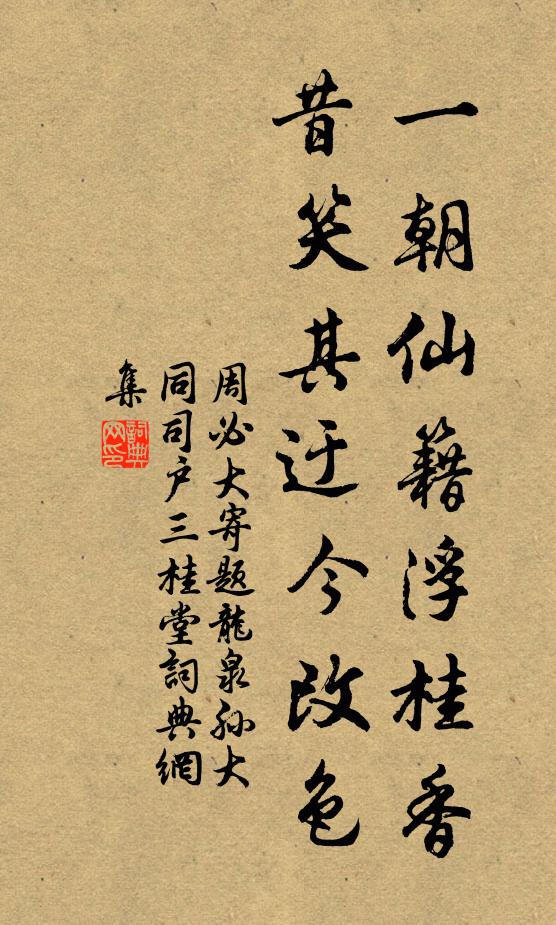 一朝仙籍浮桂香
昔笑其迂今改色
周必大寄題龍泉孫大
同司户三桂堂詞典網
集
詞典網印